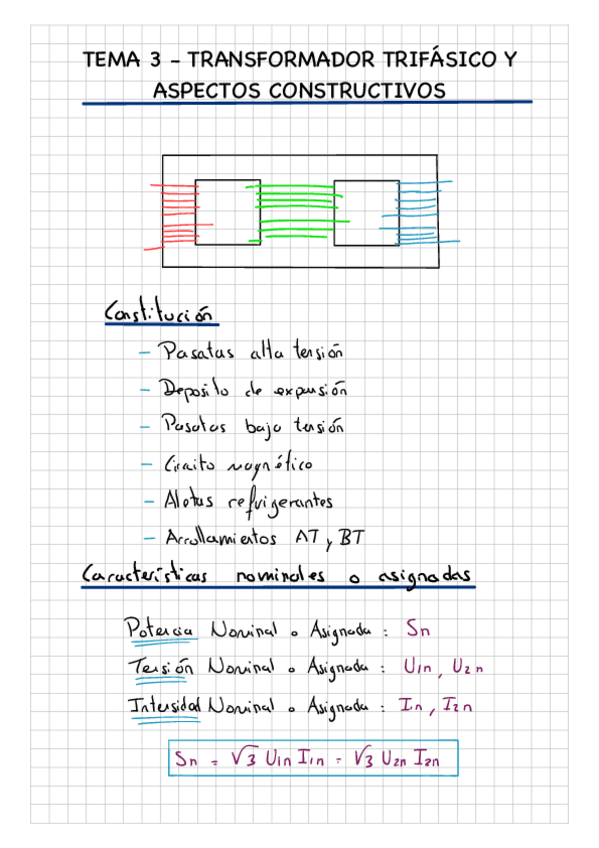 TEMA 3 – TRANSFORMADOR TRIFÁSICO Y
ASPECTOS CONSTRUCTIVOS
Constitución
– Pasatas alta tensión
– Deposito de expansión
– Pasatas baja tensión
– Circito magnético
– Aletas refrigerantes
– Arrollamientos AT y BT
Características nominales o asignadas
Potencia Nominal o Asignada : Sn
Tensión Nominal o Asignada : U1n , U2n
Intensidad Nominal o Asignada : In , I2n
Sn = √3 U1n I1n = √3 U2n I2n